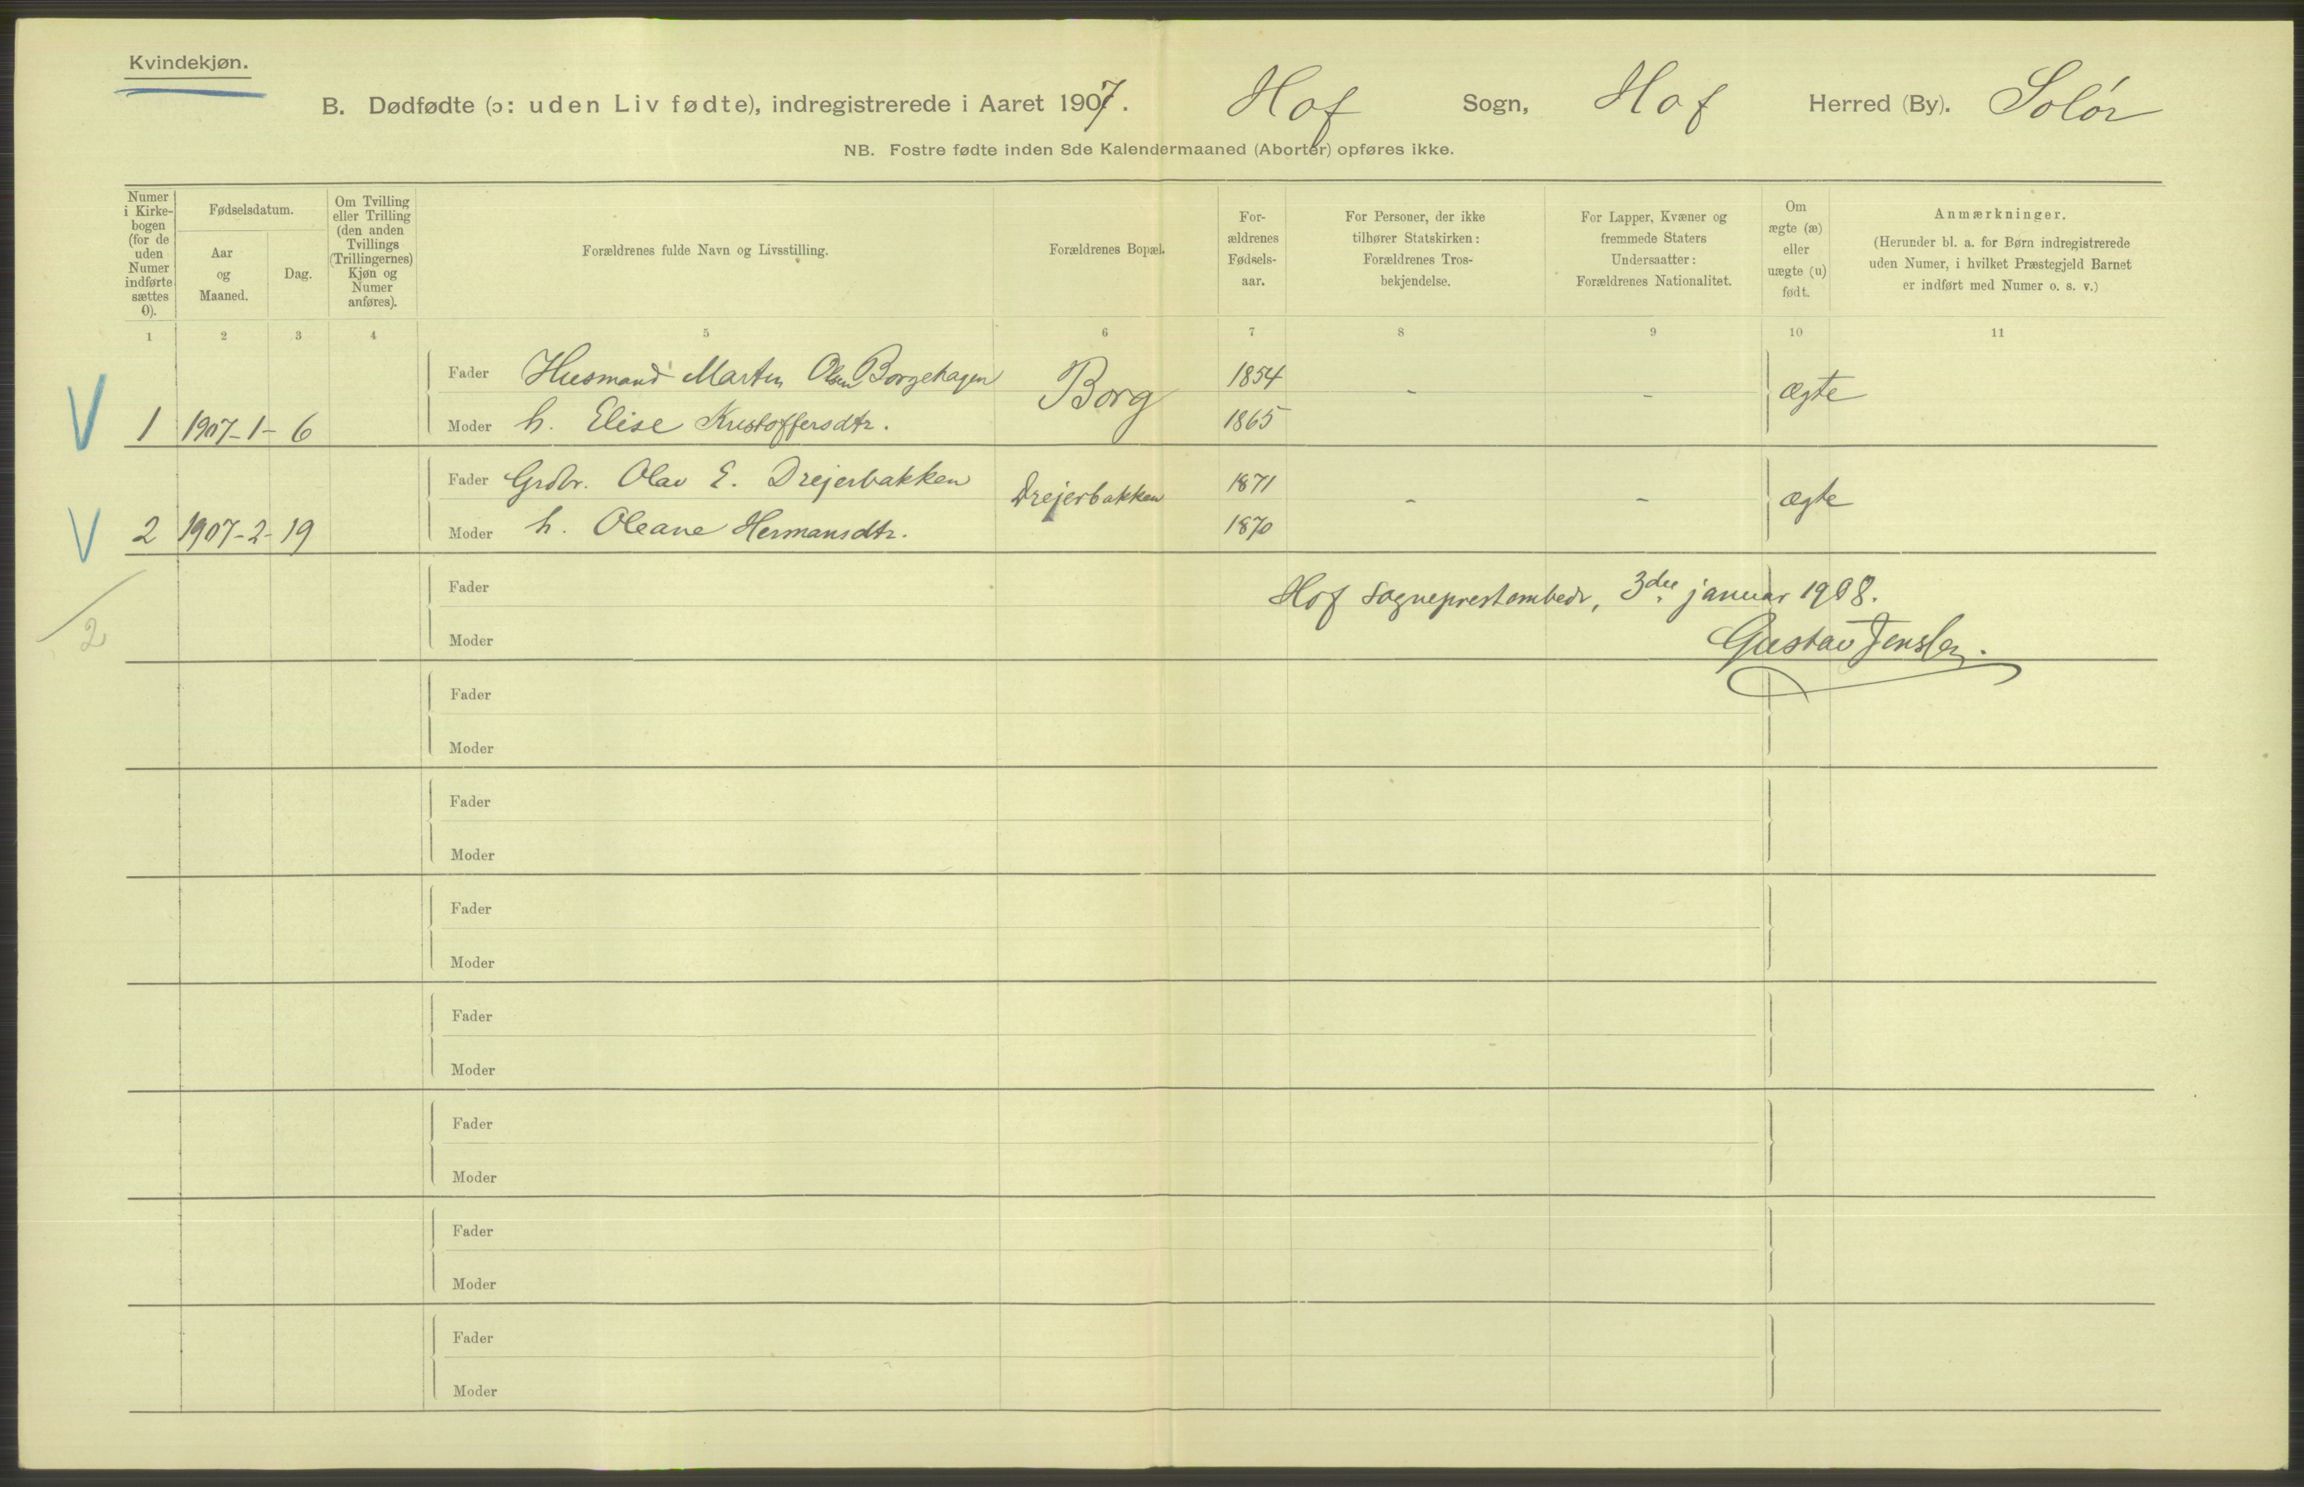 Kvindekjøn.
B. Dødfødte (ɔ: uden Liv fødte), indregistrerede i Aaret 1907. Hof Sogn, Hof Herred (By). Solør
NB. Fostre fødte inden 8de Kalendermaaned (Aborter) opføres ikke.
Numer i Kirke-
bogen
(for de
uden
Numer
indførte
sættes
0).
Fødselsdatum.
Aar
og
Maaned.
Dag.
Om Tvilling
eller Trilling
(den anden
Tvillings
(Trillingernes)
Kjøn og
Numer
anføres).
Forældrenes fulde Navn og Livsstilling.
Forældrenes Bopæl.
For-
ældrenes
Fødsels-
aar.
For Personer, der ikke
tilhører Statskirken:
Forældrenes Tros-
bekjendelse.
For Lapper, Kvæner og
fremmede Staters
Undersaatter:
Forældrenes Nationalitet.
Om
ægte (æ)
eller
uægte (u)
født.
Anmærkninger.
(Herunder bl. a. for Børn indregistrerede
uden Numer, i hvilket Præstegjeld Barnet
er indført med Numer o. s. v.)
1 2 3 4 5 6 7 8 9 10 11
Fader Husmand Martin Olsen Borgehagen Borg 1854 - - Ægte
V 1 1907-1-6 Moder h. Elise Kristoffersdtr. 1865
Fader Grdbr. Olav E. Drejerbakken Drejerbakken 1871 - - ægte
V 2 1907-2-19 Moder h. Oleane Hermansdtr. 1870
Fader Hof sogneprestembede, 3die januar 1908.
2 Moder Gustav Jensen.
Fader
Moder
Fader
Moder
Fader
Moder
Fader
Moder
Fader
Moder
Fader
Moder
Fader
Moder